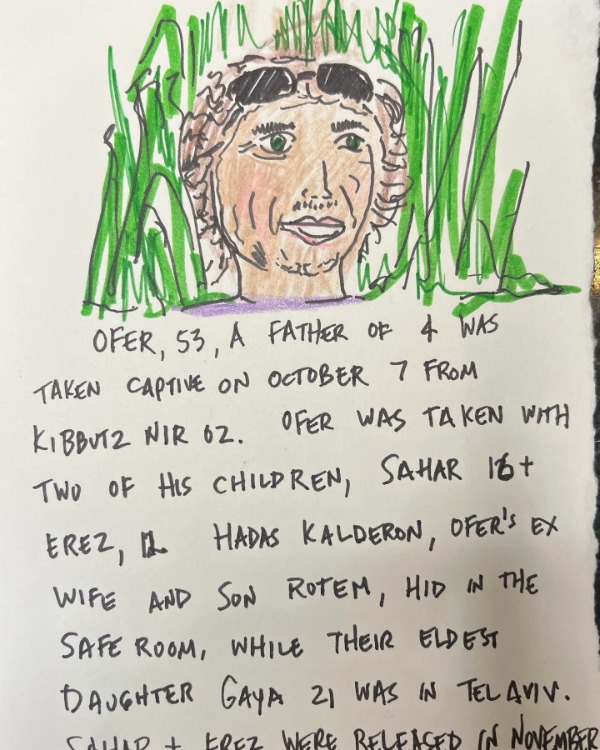 OFER, 53, A FATHER OF 4 WAS
TAKEN CAPTIVE ON OCTOBER 7 FROM
KIBBUTZ NIR OZ. OFER WAS TAKEN WITH
TWO OF HIS CHILDREN, SAHAR 16 +
EREZ, 12. HADAS KALDERON, OFER'S EX
WIFE AND SON ROTEM, HID IN THE
SAFE ROOM, WHILE THEIR ELDEST
DAUGHTER GAYA 21 WAS IN TEL AVIV.
SAHAR + EREZ WERE RELEASED IN NOVEMBER